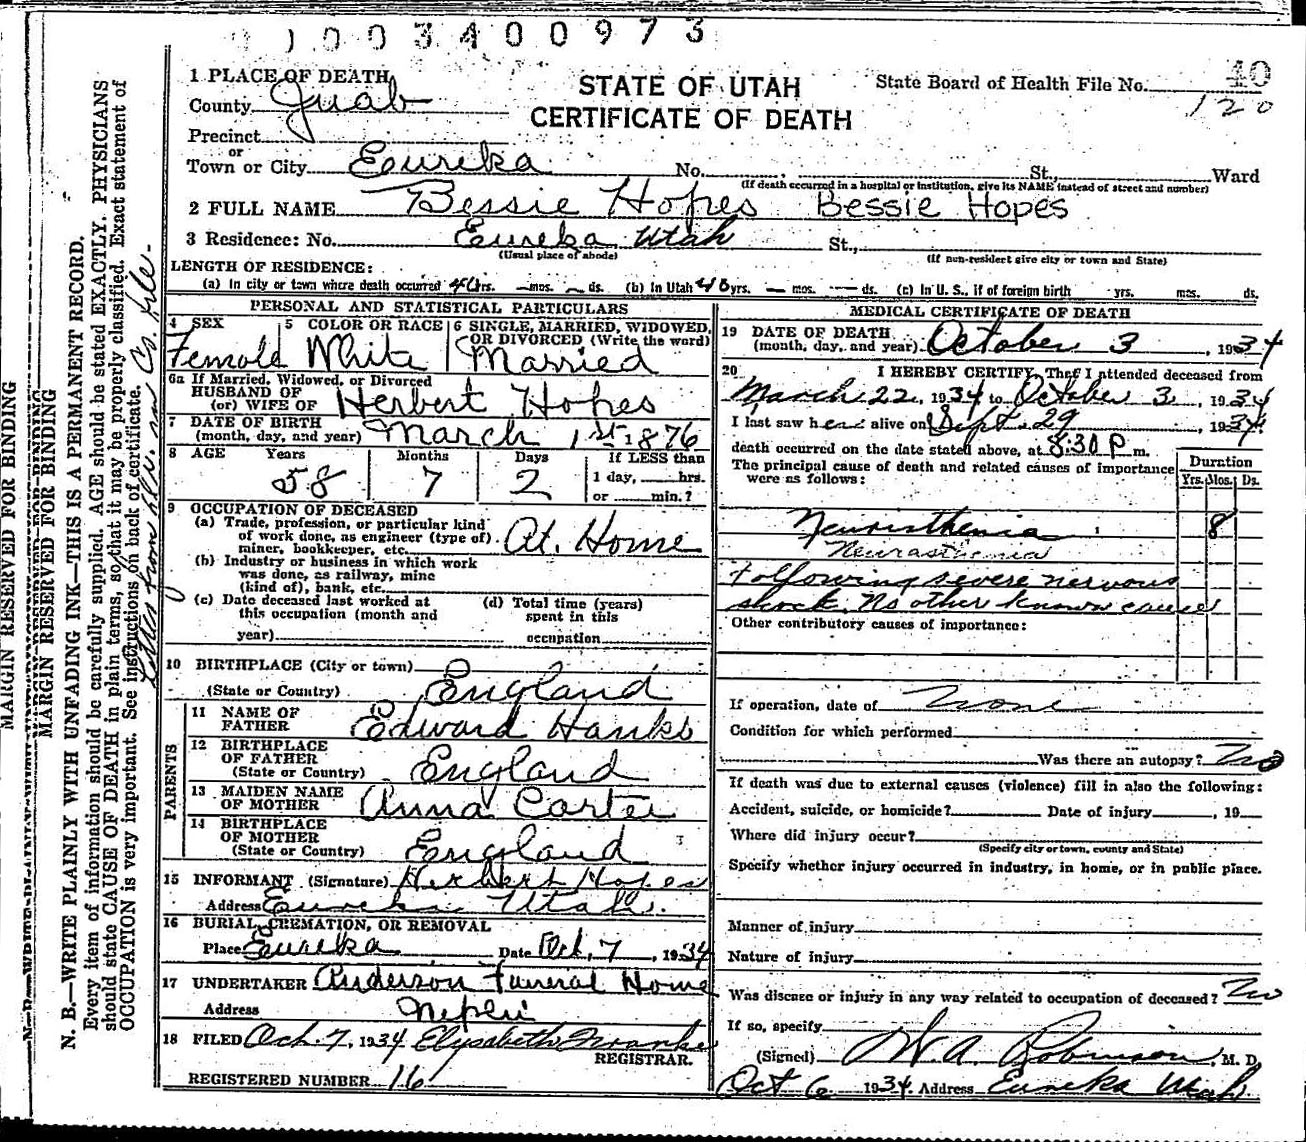 1003400973
STATE OF UTAH
CERTIFICATE OF DEATH
State Board of Health File No. 40
120
1 PLACE OF DEATH
County Juab
Precinct
or
Town or City Eureka No. St., Ward
(If death occurred in a hospital or institution, give its NAME instead of street and number)
2 FULL NAME Bessie Hopes Bessie Hopes
3 Residence: No. Eureka Utah St.,
(Usual place of abode) (If non-resident give city or town and State)
LENGTH OF RESIDENCE:
(a) In city or town where death occurred 40 yrs. — mos. — ds. (b) In Utah 40 yrs. — mos. — ds. (c) In U. S., if of foreign birth yrs. mos. ds.
PERSONAL AND STATISTICAL PARTICULARS
4 SEX 5 COLOR OR RACE 6 SINGLE, MARRIED, WIDOWED,
OR DIVORCED (Write the word)
Female White Married
6a If Married, Widowed, or Divorced
HUSBAND OF
(or) WIFE OF Herbert Hopes
7 DATE OF BIRTH
(month, day, and year) March 1st 1876
8 AGE Years Months Days If LESS than
58 7 2 1 day, hrs.
or min.?
9 OCCUPATION OF DECEASED
(a) Trade, profession, or particular kind
of work done, as engineer (type of)
miner, bookkeeper, etc. At Home
(b) Industry or business in which work
was done, as railway, mine
(kind of), bank, etc.
(c) Date deceased last worked at
this occupation (month and
year)
(d) Total time (years)
spent in this
occupation
10 BIRTHPLACE (City or town)
(State or Country) England
PARENTS
11 NAME OF
FATHER Edward Hanks
12 BIRTHPLACE
OF FATHER
(State or Country) England
13 MAIDEN NAME
OF MOTHER Anna Carter
14 BIRTHPLACE
OF MOTHER
(State or Country) England
15 INFORMANT (Signature) Herbert Hopes
Address Eureka Utah.
16 BURIAL, CREMATION, OR REMOVAL
Place Eureka Date Oct. 7, 1934
17 UNDERTAKER Anderson Funeral Home
Address Nephi
18 FILED Oct. 7, 1934 Elysabeth Franke
REGISTRAR.
REGISTERED NUMBER 16
MEDICAL CERTIFICATE OF DEATH
19 DATE OF DEATH
(month, day, and year) October 3, 1934
20 I HEREBY CERTIFY, That I attended deceased from
March 22, 1934 to October 3, 1934
I last saw her alive on Sept. 29, 1934.
death occurred on the date stated above, at 8:30 P m.
The principal cause of death and related causes of importance
were as follows:
Duration
Yrs. Mos. Ds.
Neuristhenia 8
Neurasthenia
following severe nervous
shock. No other known cause
Other contributory causes of importance:
If operation, date of None
Condition for which performed
Was there an autopsy? No
If death was due to external causes (violence) fill in also the following:
Accident, suicide, or homicide? Date of injury , 19
Where did injury occur?
(Specify city or town, county and State)
Specify whether injury occurred in industry, in home, or in public place.
Manner of injury
Nature of injury
Was disease or injury in any way related to occupation of deceased? No
If so, specify
(Signed) W. A. Robinson, M. D.
Oct 6 1934. Address Eureka Utah.
MARGIN RESERVED FOR BINDING
MARGIN RESERVED FOR BINDING
N. B.—WRITE PLAINLY WITH UNFADING INK—THIS IS A PERMANENT RECORD.
Every item of information should be carefully supplied. AGE should be stated EXACTLY. PHYSICIANS
should state CAUSE OF DEATH in plain terms, so that it may be properly classified. Exact statement of
OCCUPATION is very important. See instructions on back of certificate.